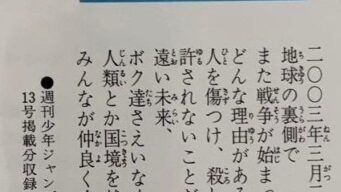 二〇〇三年三月
地球の裏側で
また戦争が始まっ
どんな理由がある
人を傷つけ、殺
許されないことが
遠い未来、
ボク達さえいな
人類とか国境を
みんなが仲良く
●週刊少年ジャン
13号掲載分収録